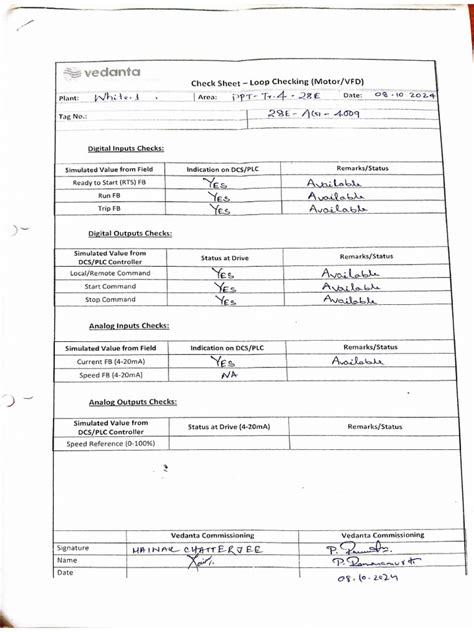 vedanta
Check Sheet – Loop Checking (Motor/VFD)
Plant: White-1. Area: DPT-Tr.4-28E Date: 08.10.2024
Tag No.: 28E-AGI-4009
Digital Inputs Checks:
Simulated Value from Field Indication on DCS/PLC Remarks/Status
Ready to Start (RTS) FB YES Available
Run FB YES Available
Trip FB YES Available
Digital Outputs Checks:
Simulated Value from DCS/PLC Controller Status at Drive Remarks/Status
Local/Remote Command YES Available
Start Command YES Available
Stop Command YES Available
Analog Inputs Checks:
Simulated Value from Field Indication on DCS/PLC Remarks/Status
Current FB (4-20mA) YES Available
Speed FB (4-20mA) NA
Analog Outputs Checks:
Simulated Value from DCS/PLC Controller Status at Drive (4-20mA) Remarks/Status
Speed Reference (0-100%)
Vedanta Commissioning Vedanta Commissioning
Signature MAINAK CHATTERJEE
Name
Date 08.10.2024